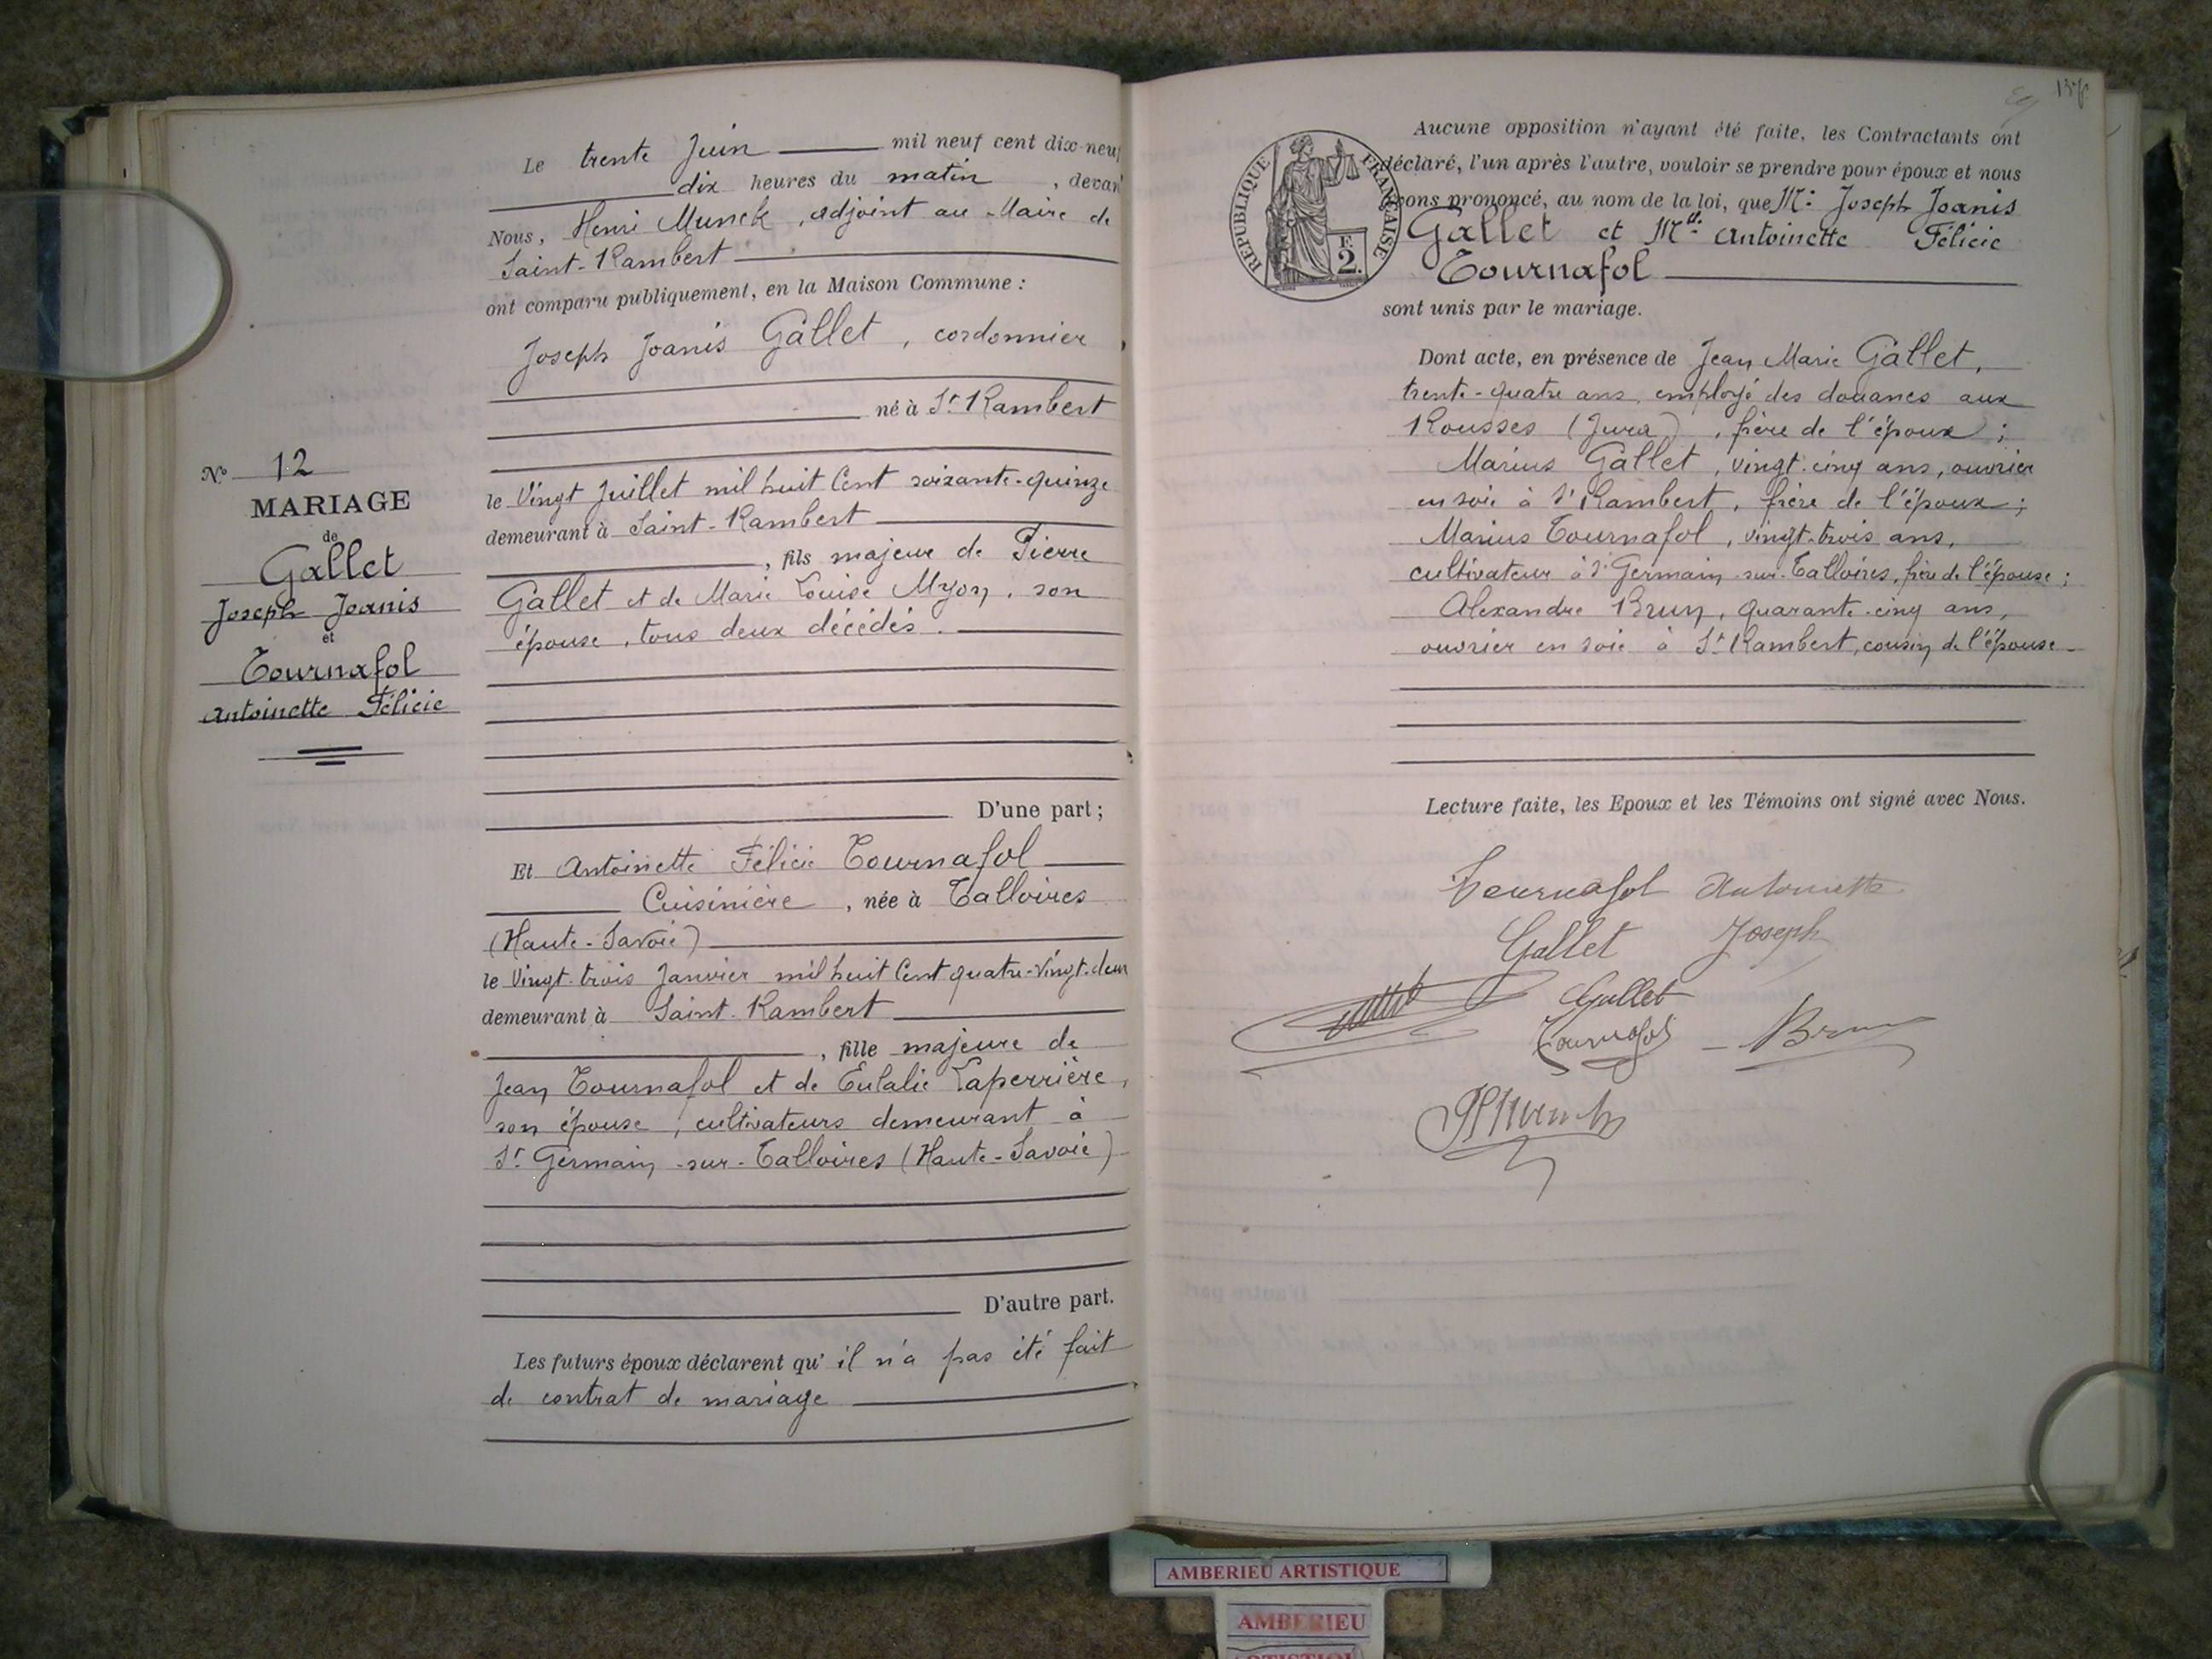 Le trente Juin mil neuf cent dix-neuf
dix heures du matin, devant
Nous, Henri Munck, adjoint au Maire de
Saint-Rambert
ont comparu publiquement, en la Maison Commune :
Joseph Joanis Gallet, cordonnier,
né à St Rambert
le Vingt Juillet mil huit Cent soixante-quinze
demeurant à Saint-Rambert
, fils majeur de Pierre
Gallet et de Marie Louise Myon, son
épouse, tous deux décédés.
N° 12
MARIAGE
de
Gallet
Joseph Joanis
et
Tournafol
Antoinette Félicie
D'une part ;
Et Antoinette Félicie Tournafol
Cuisinière, née à Talloires
(Haute-Savoie)
le Vingt-trois Janvier mil huit Cent quatre-vingt-deux
demeurant à Saint-Rambert
, fille majeure de
Jean Tournafol et de Eulalie Laperrière,
son épouse, cultivateurs demeurant à
St Germain-sur-Talloires (Haute-Savoie)
D'autre part.
Les futurs époux déclarent qu'il n'a pas été fait
de contrat de mariage
RÉPUBLIQUE FRANÇAISE
F.
2.
Aucune opposition n'ayant été faite, les Contractants ont
déclaré, l'un après l'autre, vouloir se prendre pour époux et nous
avons prononcé, au nom de la loi, que Mr Joseph Joanis
Gallet et Mlle Antoinette Félicie
Tournafol
sont unis par le mariage.
Dont acte, en présence de Jean Marie Gallet,
trente-quatre ans, employé des douanes aux
Rousses (Jura), frère de l'époux ;
Marius Gallet, vingt-cinq ans, ouvrier
en soie à St Rambert, frère de l'époux ;
Marius Tournafol, vingt-trois ans,
cultivateur à St Germain-sur-Talloires, frère de l'épouse ;
Alexandre Brun, quarante-cinq ans,
ouvrier en soie à St Rambert, cousin de l'épouse
Lecture faite, les Epoux et les Témoins ont signé avec Nous.
Tournafol Antoinette
Gallet Joseph
Gallet
Tournafol Brun
H Munck
AMBERIEU ARTISTIQUE
AMBERIEU
ARTISTIQUE